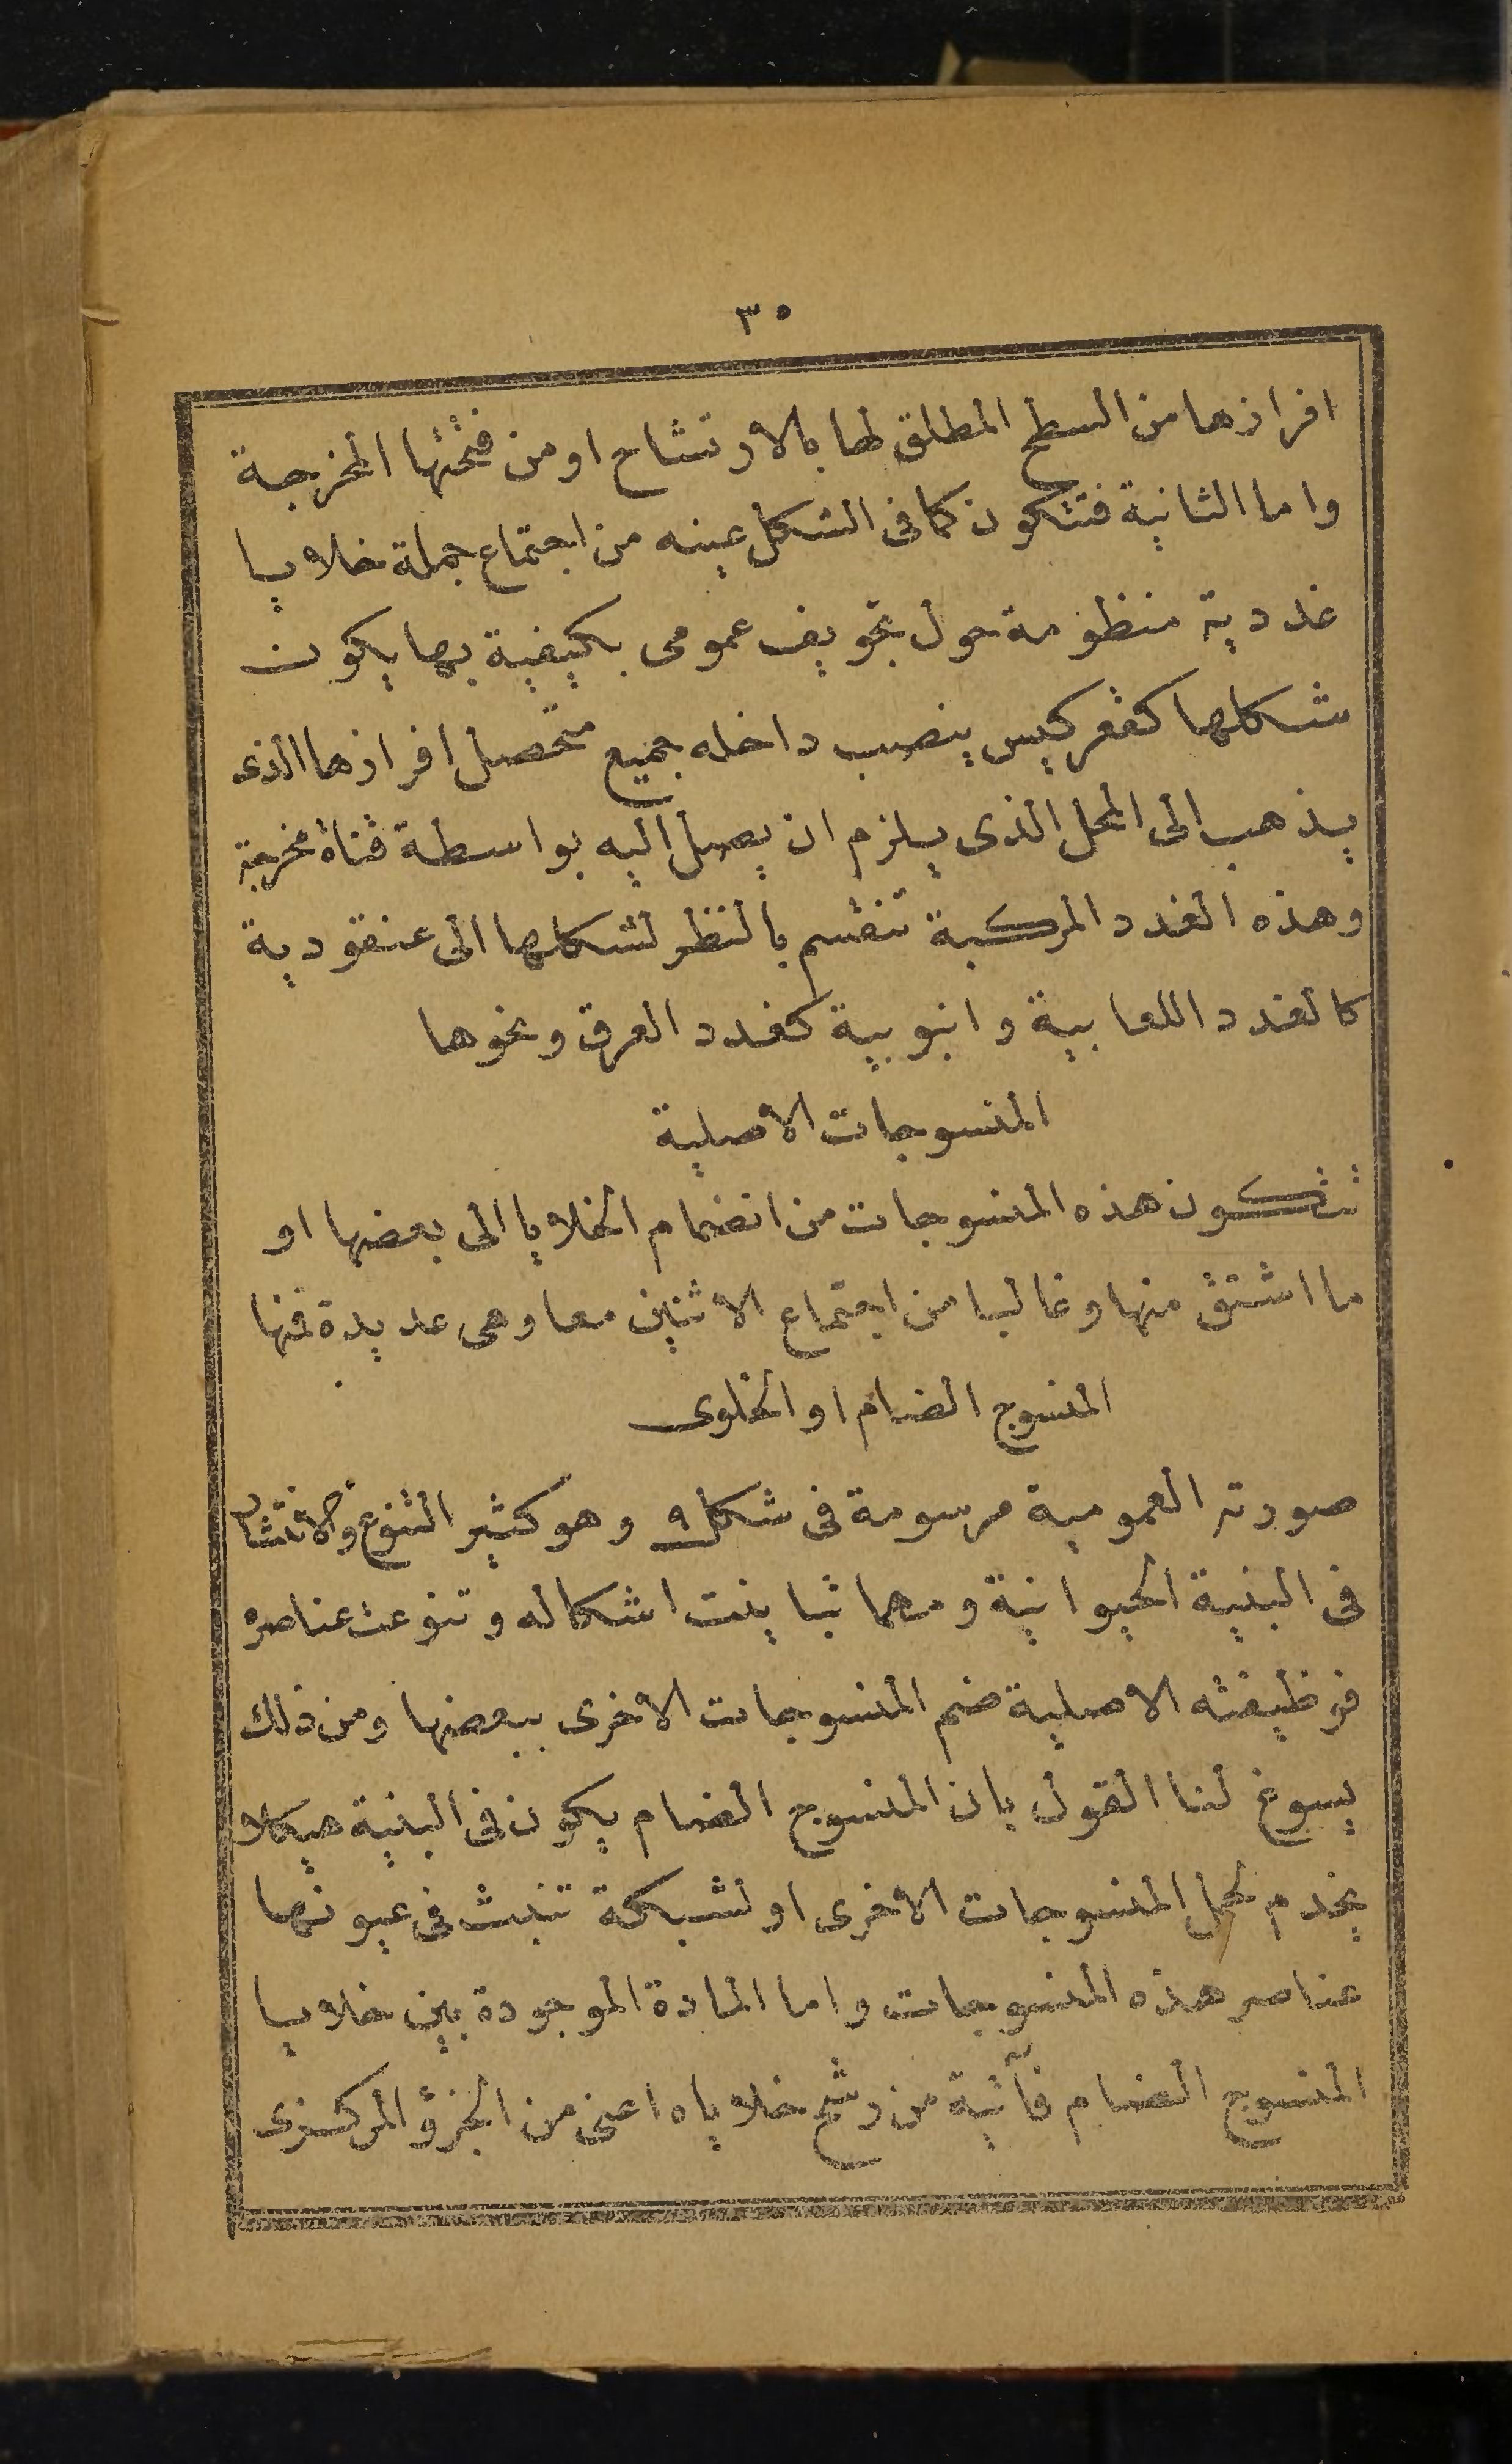 ٣٠
افرازها من السطح المطلق لها بالارتشاح او من فتحتها المخرجة
واما الثانية فتتكون كما فى الشكل عينه من اجتماع جملة خلايا
غددية منظومة حول تجويف عمومى بكيفية بها يكون
شكلها كقعر كيس ينصب داخله جميع متحصل افرازها الذى
يذهب الى المحل الذى يلزم ان يصل اليه بواسطة قناة مخرجة
وهذه الغدد المركبة تنقسم بالنظر لشكلها الى عنقودية
كالغدد اللعابية وانبوبية كغدد العرق ونحوها
المنسوجات الاصلية
تتكون هذه المنسوجات من انضمام الخلايا الى بعضها او
ما اشتق منها وغالبا من اجتماع الاثنين معا وهى عديدة فمنها
المنسوج الضام او الخلوى
صورته العمومية مرسومة فى شكل ٩ وهو كثير التنوع والانتشار
فى البنية الحيوانية ومهما تباينت اشكاله وتنوعت عناصره
فوظيفته الاصلية ضم المنسوجات الاخرى ببعضها ومن ذلك
يسوغ لنا القول بان المنسوج الضام يكون فى البنية هيكلا
يخدم لحمل المنسوجات الاخرى او لشبكة تنبث فى عيونها
عناصر هذه المنسوجات واما المادة الموجودة بين خلايا
المنسوج الضام فآتية من رشح خلاياه اعنى من الجزؤ المركزى